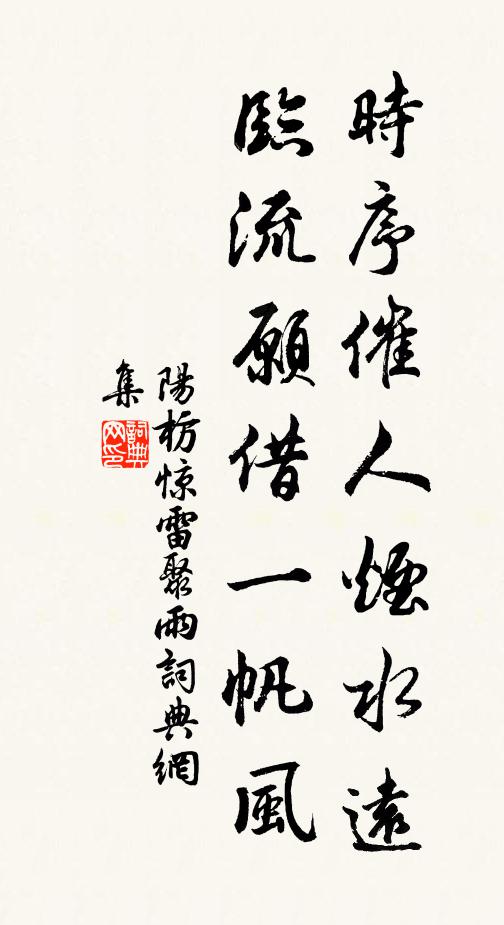 時序催人煙水遠
臨流願借一帆風
陽枋惊雷聚雨詞典網
集
詞典
网印